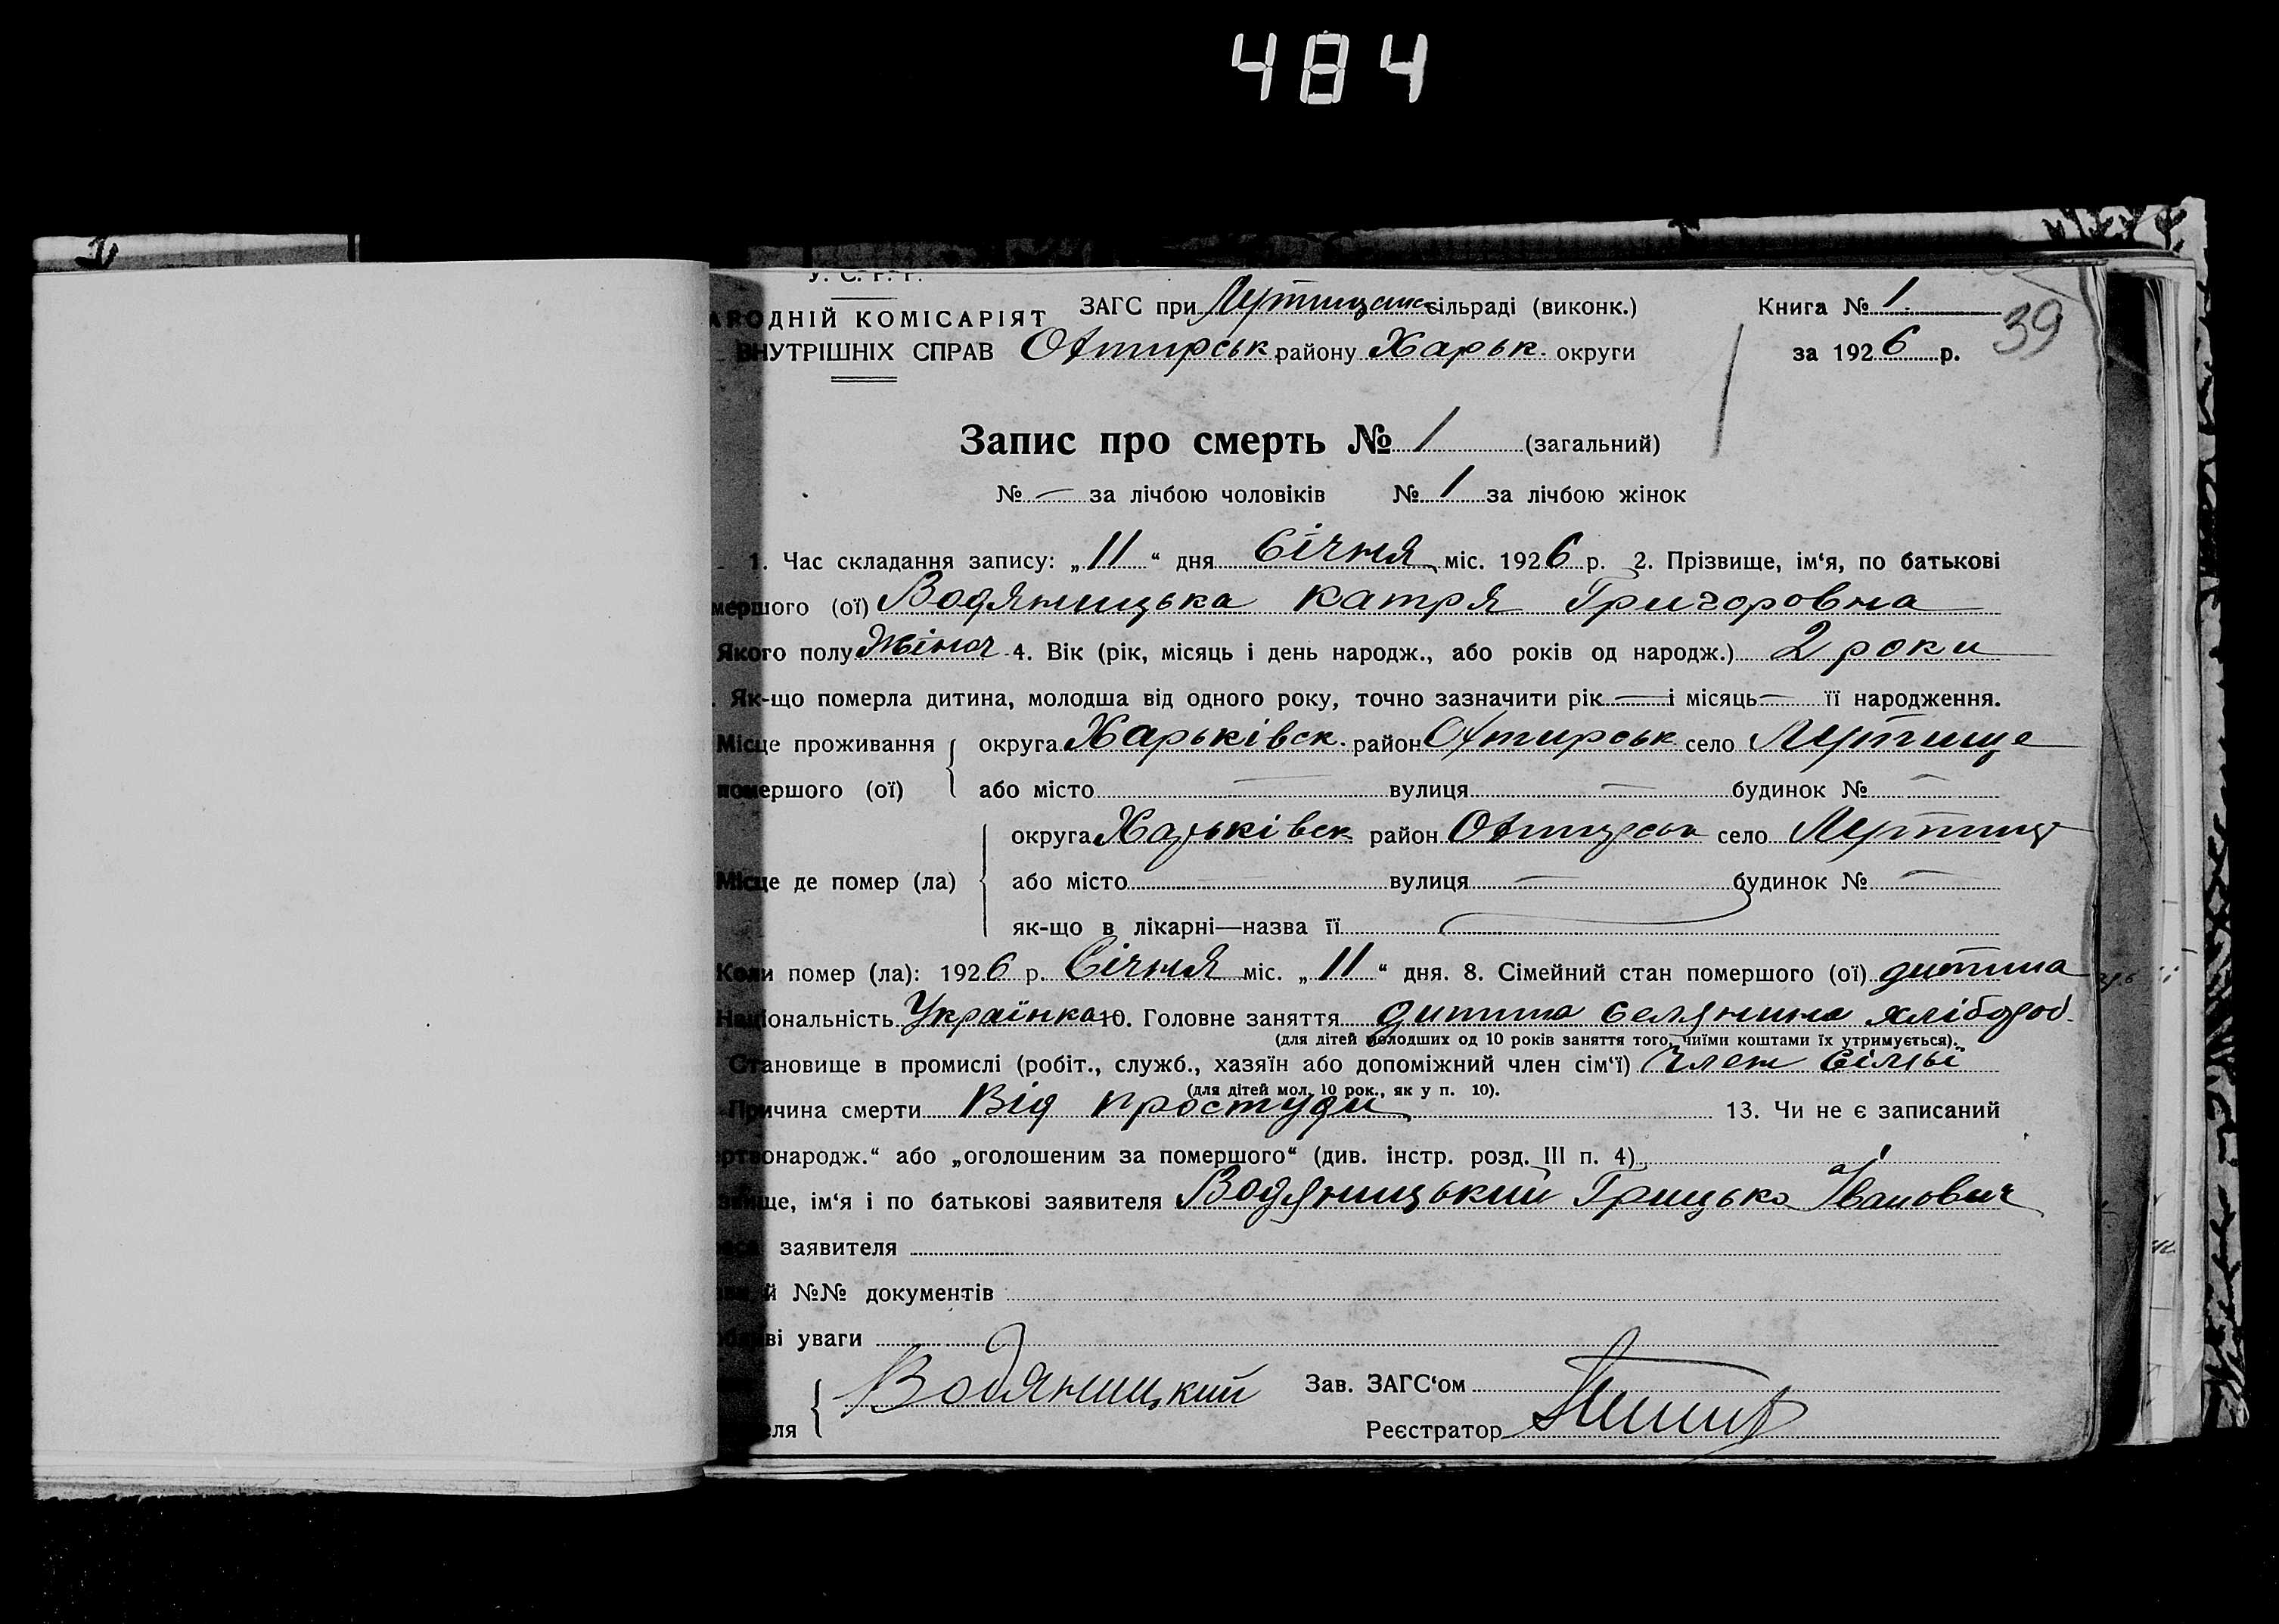 484
У. С. Р. Р.
АРОДНІЙ КОМІСАРІЯТ ЗАГС при Лутищанськ сільраді (виконк.) Книга № 1 39
ВНУТРІШНІХ СПРАВ Охтирськ району Харьк. округи за 1926 р.
Запис про смерть № 1 (загальний)
№ — за лічбою чоловіків № 1 за лічбою жінок
1. Час складання запису: „11“ дня Січня міс. 1926 р. 2. Прізвище, ім‘я, по батькові
мершого (ої) Водяницька Катря Григоровна
Якого полу Жіноч 4. Вік (рік, місяць і день народж., або років од народж.) 2 роки
. Як-що померла дитина, молодша від одного року, точно зазначити рік — і місяць — її народження.
Місце проживання округа Харьківск. район Охтирськ село Лутище
помершого (ої) або місто — вулиця — будинок № —
округа Харьківск район Охтирськ село Лутище
Місце де помер (ла) або місто — вулиця — будинок № —
як-що в лікарні—назва її
Коли помер (ла): 1926 р. Січня міс. „11“ дня. 8. Сімейний стан помершого (ої) дитина
Національність Українка 10. Головне заняття дитина селянина хлібороб.
(для дітей молодших од 10 років заняття того, чиїми коштами їх утримується).
Становище в промислі (робіт., служб., хазяїн або допоміжний член сім‘ї) член сімьі
(для дітей мол. 10 рок., як у п. 10).
Причина смерти Від простуди 13. Чи не є записаний
ртвонародж.“ або „оголошеним за помершого“ (див. інстр. розд. III п. 4)
звище, ім‘я і по батькові заявителя Водяницький Грицько Іванович
заявителя
й №№ документів
ві уваги
Водяницкий Зав. ЗАГС‘ом
еля Реєстратор